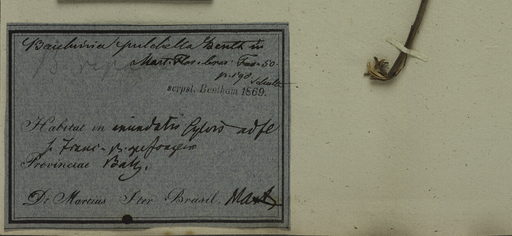 Bauhinia pulchella Benth in
Mart. Flor. bras. Fas. 50.
p. 190
scrpst. Bentham 1869.
Habitat in inundatis Sylvis ad fl
S. Franc.
Provinciae
Dr Martius Iter Brasil. Mart.